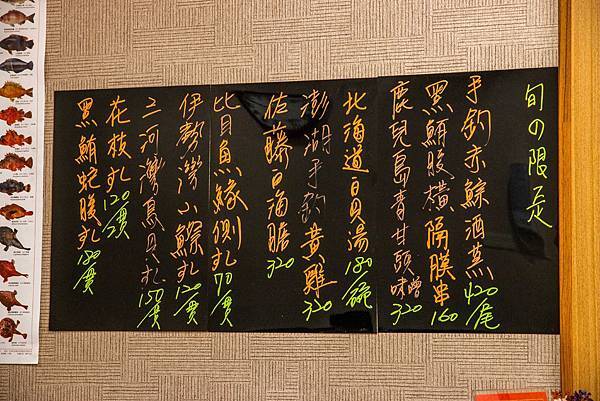 旬の限定
手釣赤鯮酒蒸 420尾
黑鮪腹橫隔膜串 160
鹿兒島青甘頭味噌 320
北海道白貝湯 180碗
澎湖手釣黃雞 320
佐藤白海膽 320
比目魚緣側丸 70貫
伊勢灣小鰶丸 120貫
三河灣鳥貝丸 150貫
花枝丸 120貫
黑鮪蛇腹丸 180貫